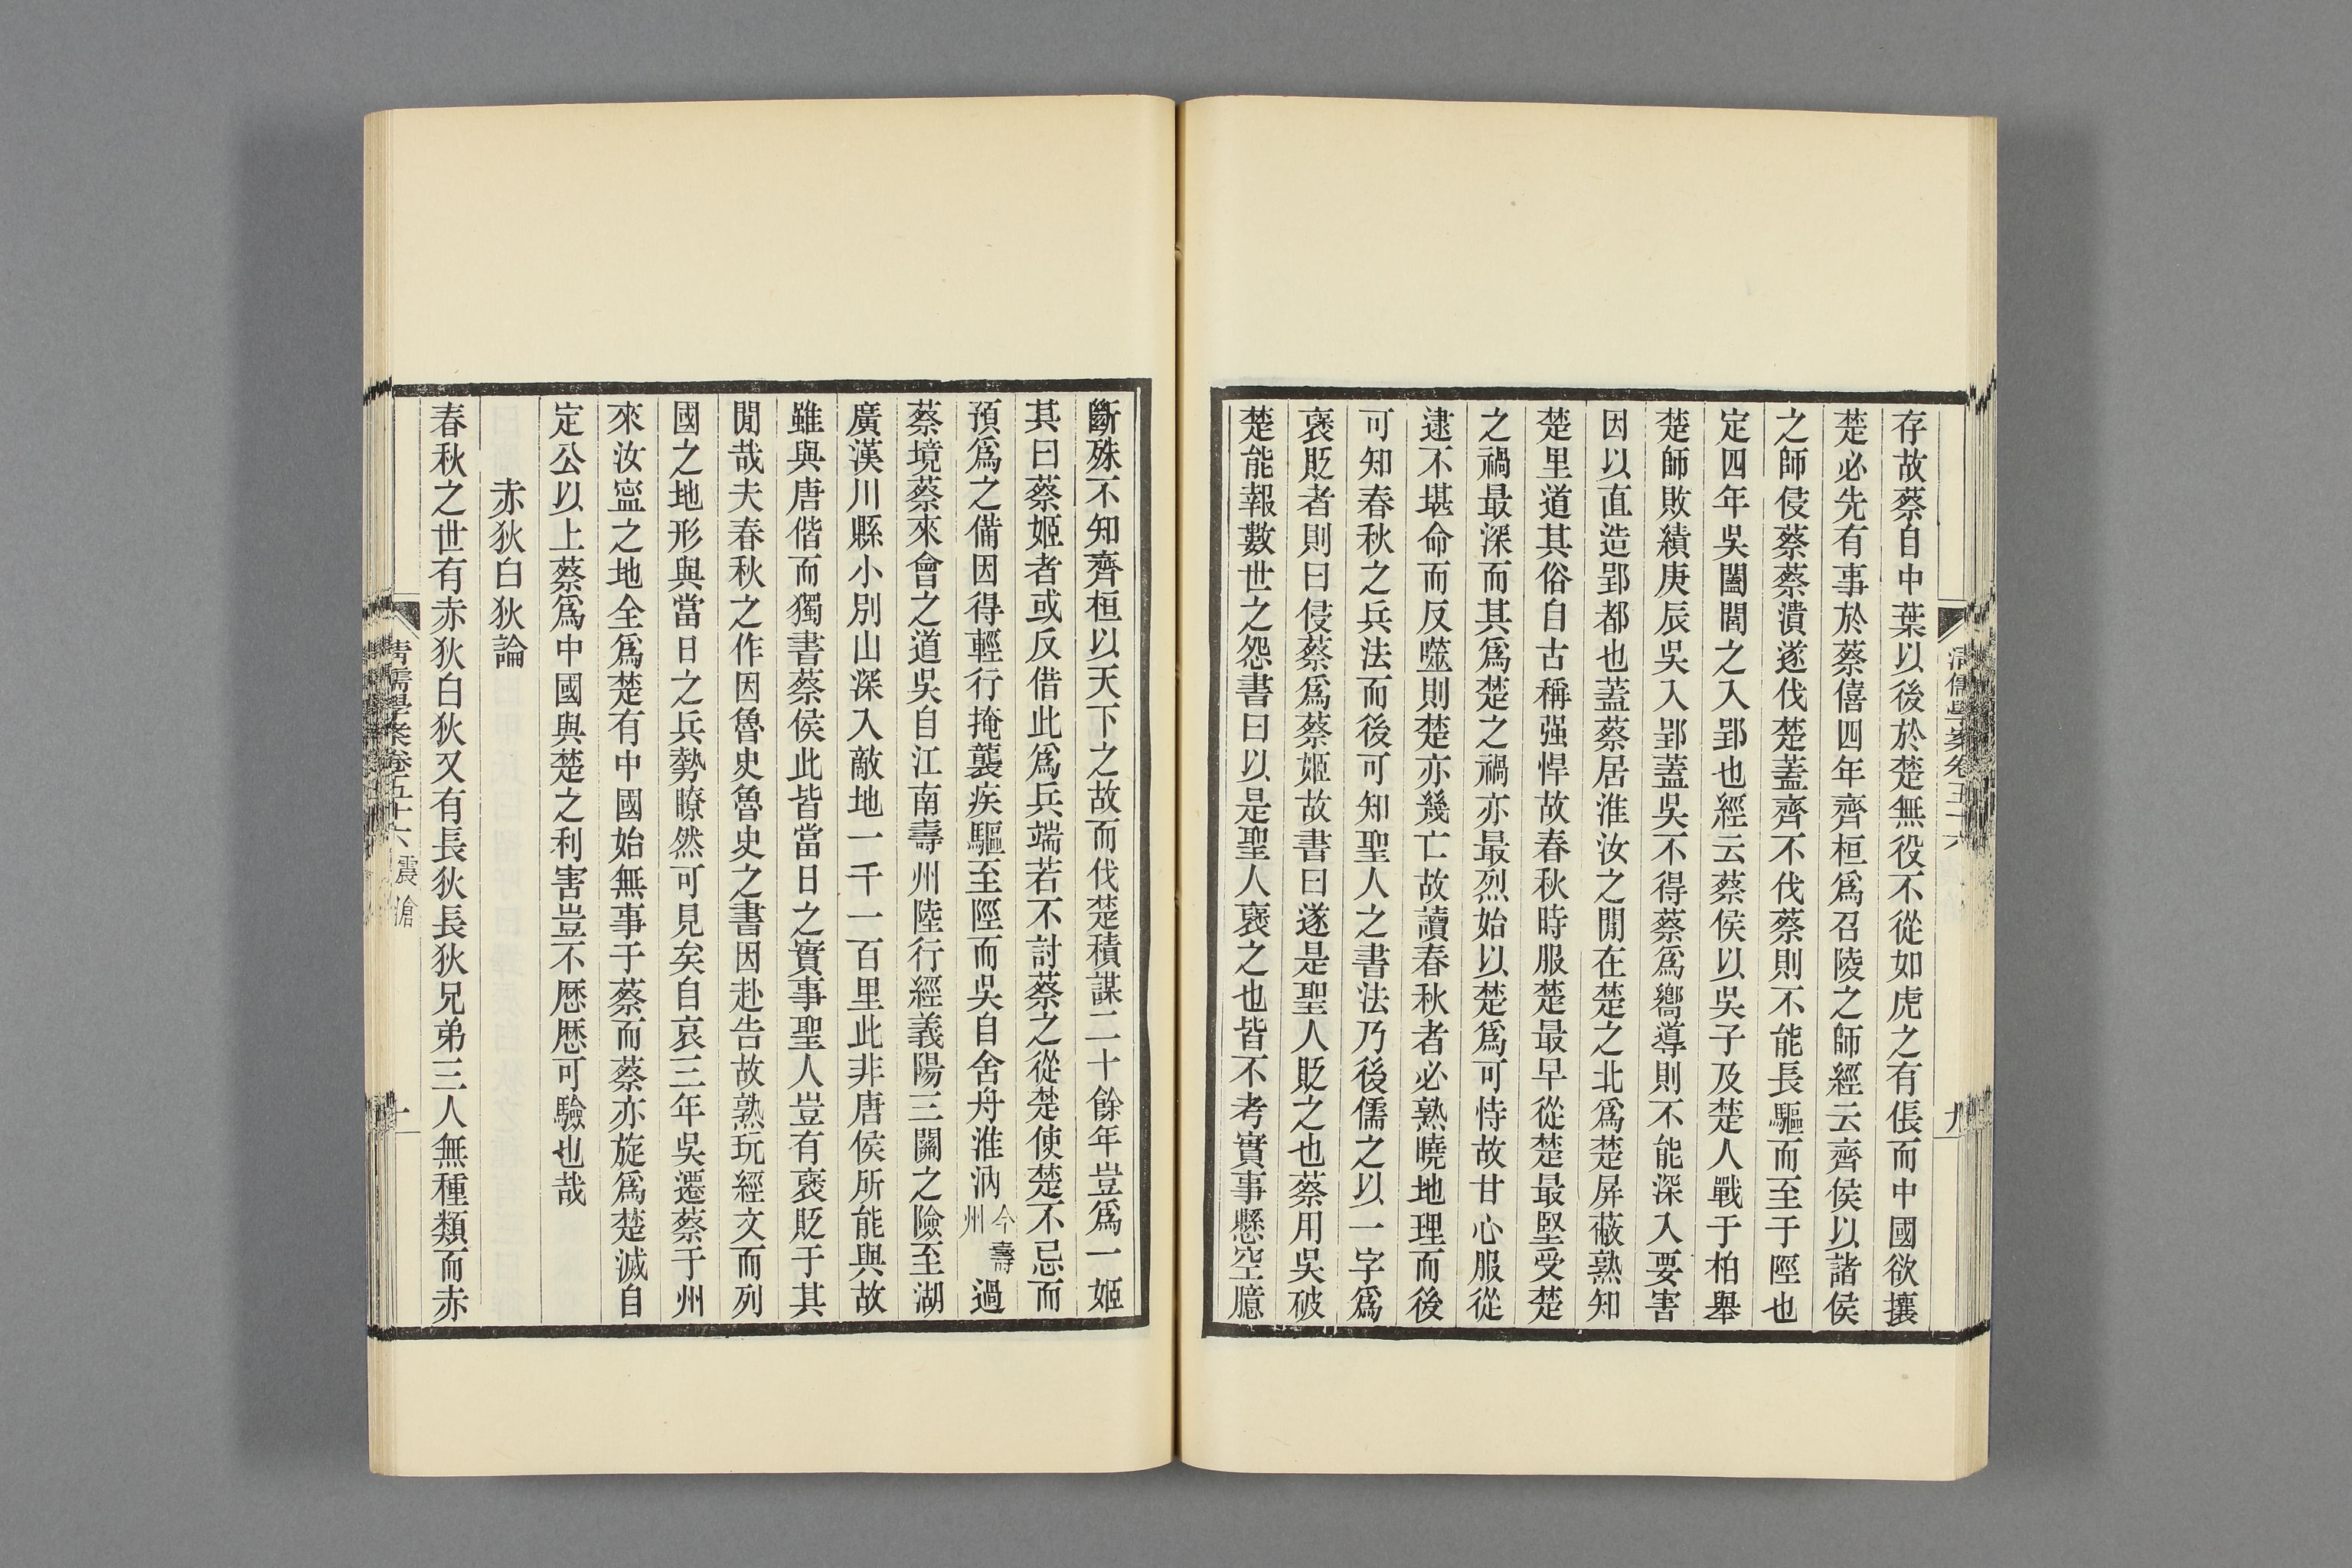 清儒學案卷五十六
九
存故蔡自中葉以後於楚無役不從如虎之有倀而中國欲攘
楚必先有事於蔡僖四年齊桓爲召陵之師經云齊侯以諸侯
之師侵蔡蔡潰遂伐楚蓋齊不伐蔡則不能長驅而至于陘也
定四年吳闔閭之入郢也經云蔡侯以吳子及楚人戰于柏舉
楚師敗績庚辰吳入郢蓋吳不得蔡爲嚮導則不能深入要害
因以直造郢都也蓋蔡居淮汝之閒在楚之北爲楚屏蔽熟知
楚里道其俗自古稱强悍故春秋時服楚最早從楚最堅受楚
之禍最深而其爲楚之禍亦最烈始以楚爲可恃故甘心服從
逮不堪命而反噬則楚亦幾亡故讀春秋者必熟曉地理而後
可知春秋之兵法而後可知聖人之書法乃後儒之以一字爲
褒貶者則曰侵蔡爲蔡姬故書曰遂是聖人貶之也蔡用吳破
楚能報數世之怨書曰以是聖人褒之也皆不考實事懸空臆
斷殊不知齊桓以天下之故而伐楚積謀二十餘年豈爲一姬
其曰蔡姬者或反借此爲兵端若不討蔡之從楚使楚不忌而
預爲之備因得輕行掩襲疾驅至陘而吳自舍舟淮汭今壽州過
蔡境蔡來會之道吳自江南壽州陸行經義陽三關之險至湖
廣漢川縣小別山深入敵地一千一百里此非唐侯所能與故
雖與唐偕而獨書蔡侯此皆當日之實事聖人豈有褒貶于其
閒哉夫春秋之作因魯史魯史之書因赴告故熟玩經文而列
國之地形與當日之兵勢瞭然可見矣自哀三年吳遷蔡于州
來汝寍之地全爲楚有中國始無事于蔡而蔡亦旋爲楚滅自
定公以上蔡爲中國與楚之利害豈不歷歷可驗也哉
赤狄白狄論
春秋之世有赤狄白狄又有長狄長狄兄弟三人無種類而赤
清儒學案卷五十六 震滄